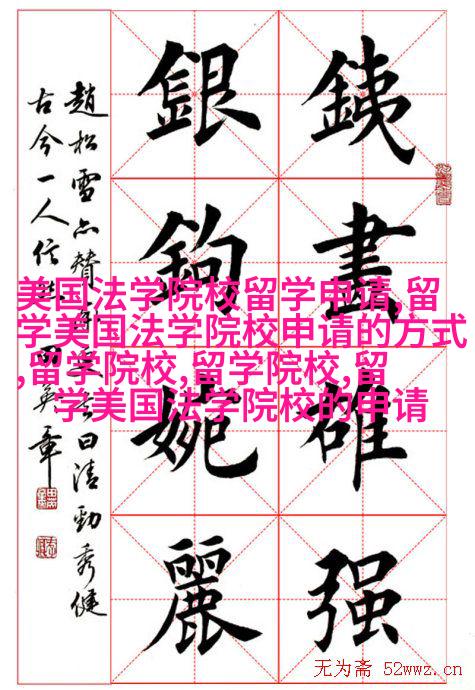 銕畫雄强
銀鉤婉麗
趙松雪亦贊曰清勁秀健
古今一人信英章
美国法学院校留学申请,留
学美国法学院校申请的方式
,留学院校,留学院校,留
学美国法学院校的申请
无为斋 52wwz.cn